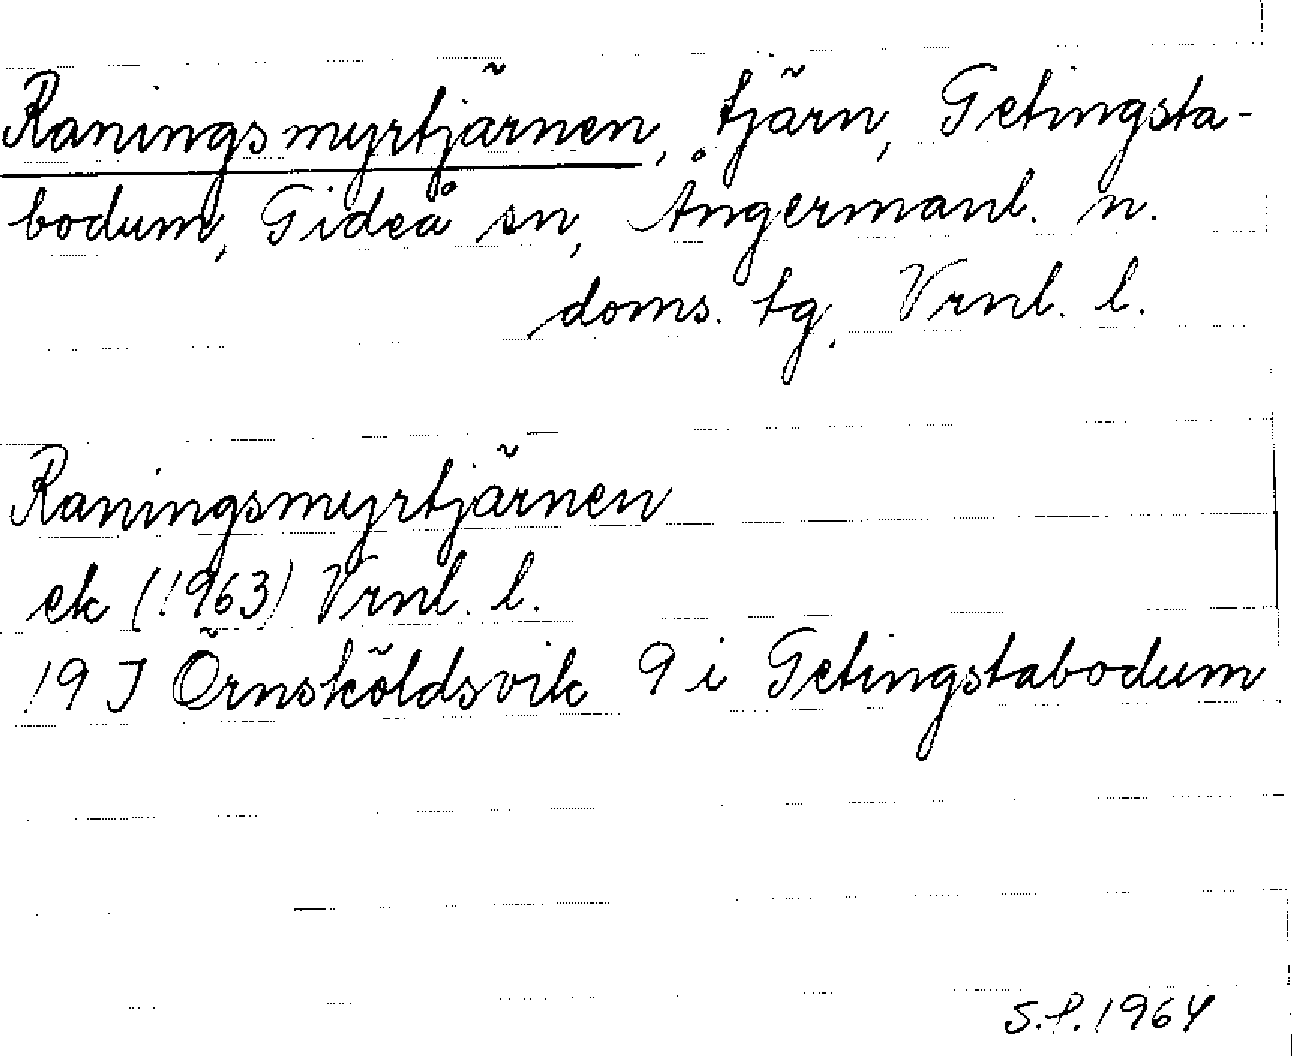 Raningsmyrtjärnen, tjärn, Getingsta-
bodum, Gideå sn, Ångermanl. n.
doms. tg. Vrnl. l.
Raningsmyrtjärnen
ek (1963) Vrnl. l.
19 J Örnsköldsvik 9 i Getingstabodum
S.P. 1964